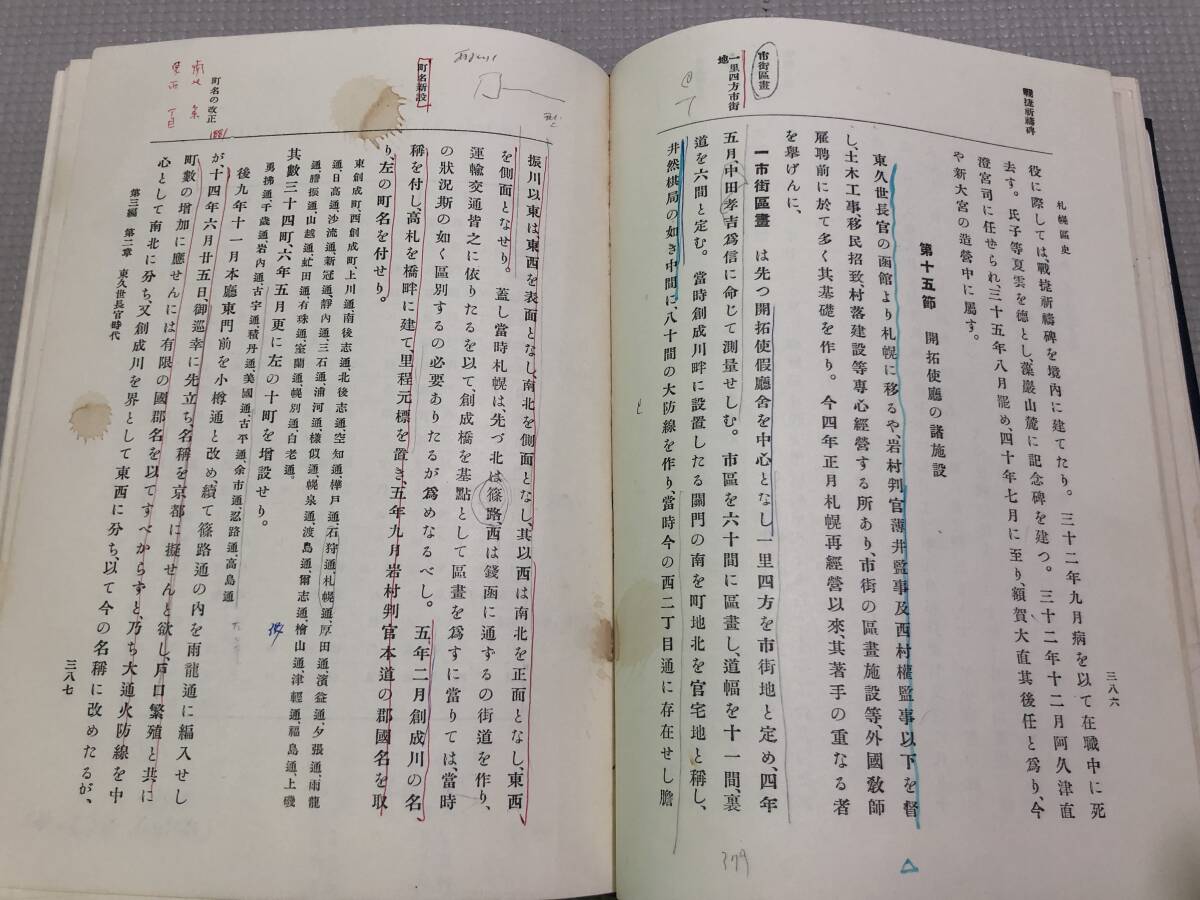 札幌區史
三八六
戰捷祈禱碑
役に際しては、戰捷祈禱碑を境内に建てたり。三十二年九月病を以て在職中に死
去す。氏子等夏雲を德とし藻巖山麓に記念碑を建つ。三十二年十二月阿久津直
澄宮司に任せられ、三十五年八月罷め、四十年七月に至り、額賀大直其後任と爲り、今
や新大宮の造營中に屬す。
第十五節 開拓使廳の諸施設
東久世長官の函館より札幌に移るや、岩村判官薄井監事及西村權監事以下を督
し、土木工事移民招致、村落建設等專心經營する所あり、市街の區畫施設等、外國敎師
雇聘前に於て多く其基礎を作り。今四年正月札幌再經營以來、其著手の重なる者
を擧げんに、
市街區畫
一里四方市街
地
一市街區畫 は先つ開拓使假廳舍を中心となし一里四方を市街地と定め、四年
五月、中田孝吉爲信に命じて測量せしむ。市區を六十間に區畫し、道幅を十一間、裏
道を六間と定む。當時創成川畔に設置したる關門の南を町地北を官宅地と稱し、
井然棋局の如き中間に、八十間の大防線を作り、當時今の西二丁目通に存在せし膽
379
町名新設
振川以東は、東西を表面となし、南北を側面となし、其以西は南北を正面となし、東西
を側面となせり。蓋し當時札幌は、先づ北は篠路、西は錢函に通ずるの街道を作り、
運輸交通皆之に依りたるを以て、創成橋を基點として區畫を爲すに當りては、當時
の狀況斯の如く區別するの必要ありたるが爲めなるべし。五年二月創成川の名
稱を付し、高札を橋畔に建て、里程元標を置き、五年九月岩村判官本道の郡國名を取
り、左の町名を付せり。
東創成町、西創成町、上川通、南後志通、北後志通、空知通、樺戶通、石狩通、札幌通、厚田通、濱益通、夕張通、雨龍
通、膽振通、山越通、虻田通、有珠通、室蘭通、幌別通、白老通。
通、日高通、沙流通、新冠通、靜内通、三石通、浦河通、樣似通、幌泉通、渡島通、爾志通、檜山通、津輕通、福島通、上磯
其數三十四町、六年五月更に左の十町を增設せり。
勇拂通、千歲通、岩内通、古宇通、積丹通、美國通、古平通、余市通、忍路通、高島通
町名の改正
1881
後九年十一月本廳東門前を小樽通と改め、續て篠路通の内を雨龍通に編入せし
が、十四年六月廿五日、御巡幸に先立ち、名稱を京都に擬せんと欲し、戶口繁殖と共に
町數の增加に應せんには有限の國郡名を以てすべからずと、乃ち大通火防線を中
心として南北に分ち、又創成川を界として東西に分ち、以て今の名稱に改めたるが、
第三編 第二章 東久世長官時代
三八七